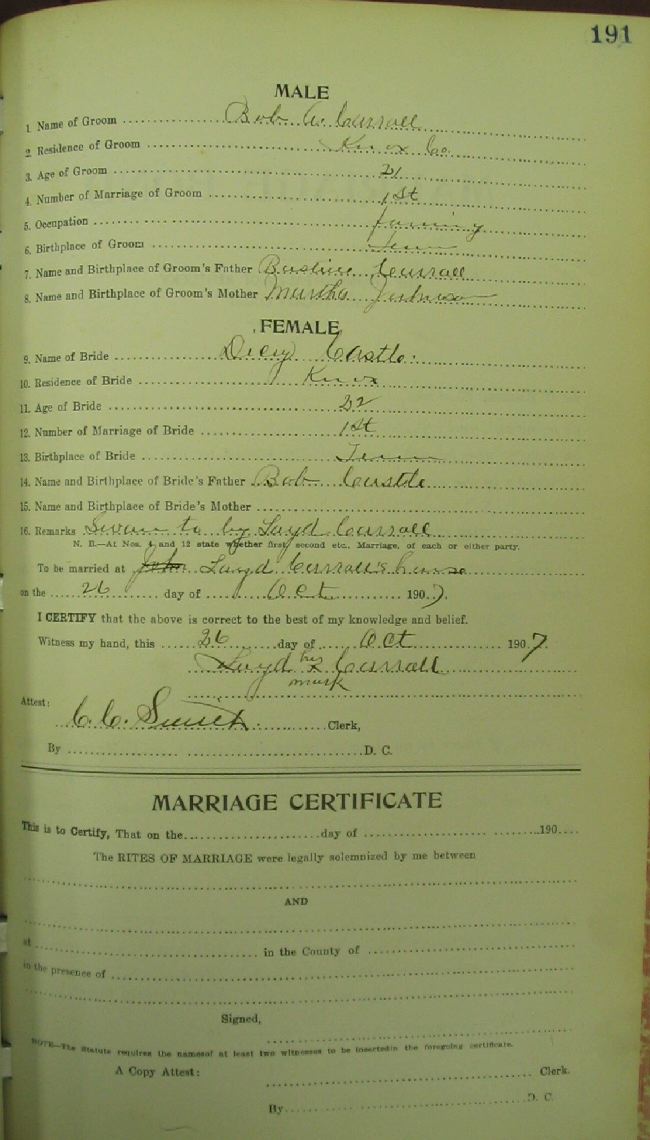 191
MALE
1. Name of Groom Bob W. Carroll
2. Residence of Groom Knox Co
3. Age of Groom 21
4. Number of Marriage of Groom 1st
5. Occupation farming
6. Birthplace of Groom Tenn
7. Name and Birthplace of Groom's Father Carroll
8. Name and Birthplace of Groom's Mother Martha Johnson
FEMALE
9. Name of Bride Dicy Castle
10. Residence of Bride Knox
11. Age of Bride 22
12. Number of Marriage of Bride 1st
13. Birthplace of Bride Tenn
14. Name and Birthplace of Bride's Father Bob Castle
15. Name and Birthplace of Bride's Mother
16. Remarks Sworn to by Loyd Carroll
N. B.—At Nos. 4 and 12 state whether first, second etc., Marriage, of each or either party.
To be married at John Loyd Carroll's house
on the 26 day of Oct 1907.
I CERTIFY that the above is correct to the best of my knowledge and belief.
Witness my hand, this 26 day of Oct 1907.
Loyd his x Carroll
mark
Attest:
C. C. Smith Clerk,
By D. C.
MARRIAGE CERTIFICATE
This is to Certify, That on the day of 190
The RITES OF MARRIAGE were legally solemnized by me between
AND
at in the County of
in the presence of
Signed,
NOTE—The Statute requires the namesof at least two witnesses to be insertedin the foregoing certificate.
A Copy Attest: Clerk.
By D. C.